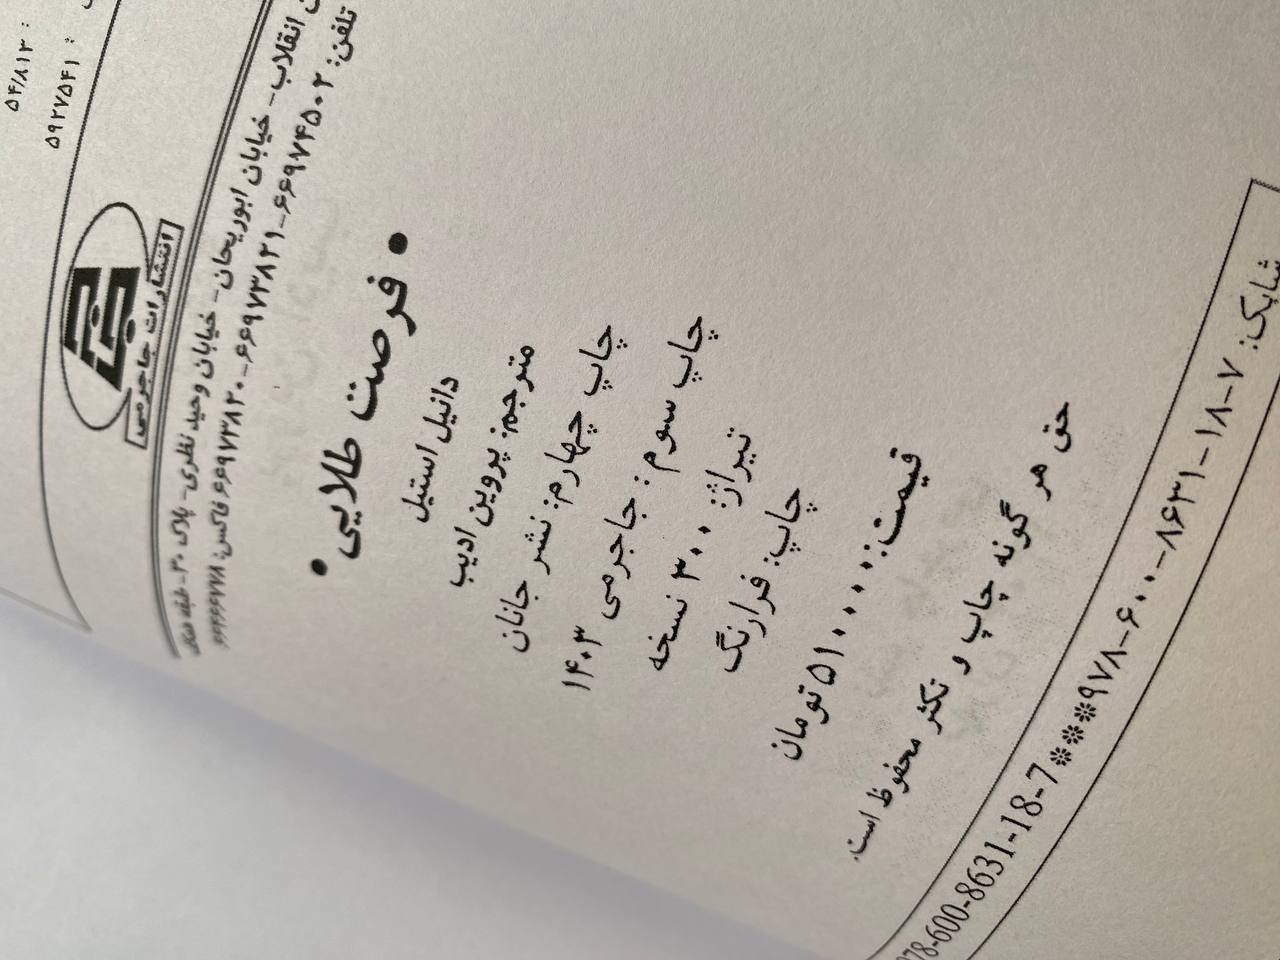 : ۵۴/۸۱۳
: ۵۹۲۷۵۴۱
انتشارات جاجرمی
انقلاب - خیابان ابوریحان - خیابان وحید نظری - پلاک ۳۰ - طبقه
تلفن: ۶۶۹۷۴۵۰۲-۶۶۹۷۳۸۲۱-۶۶۹۷۳۸۲۰ فاکس:
• فرصت طلایی •
دانیل استیل
مترجم: پروین ادیب
چاپ چهارم: نشر جانان
چاپ سوم: جاجرمی ۱۴۰۳
تیراژ: ۳۰۰ نسخه
چاپ: فرارنگ
قیمت: ۵۱۰۰۰۰ تومان
حق هر گونه چاپ و تکثر محفوظ است.
شابک: ۷-۱۸-۸۶۳۱-۶۰۰-۹۷۸***78-600-8631-18-7